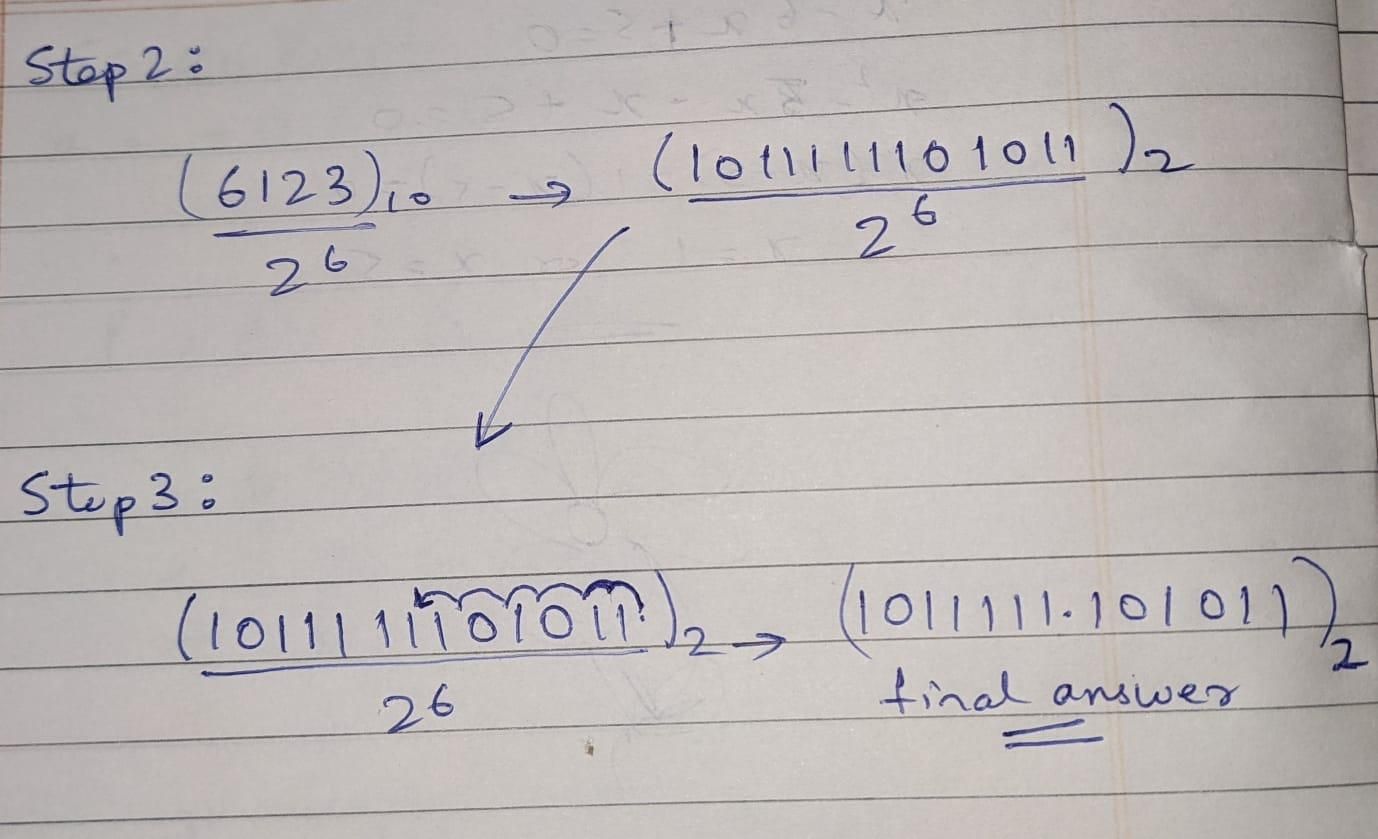 Step 2 :
(6123)₁₀ → (1011111101011)₂
2⁶ 2⁶
Step 3 :
(1011111101011.)₂ → (1011111.101011)₂
2⁶ final answer